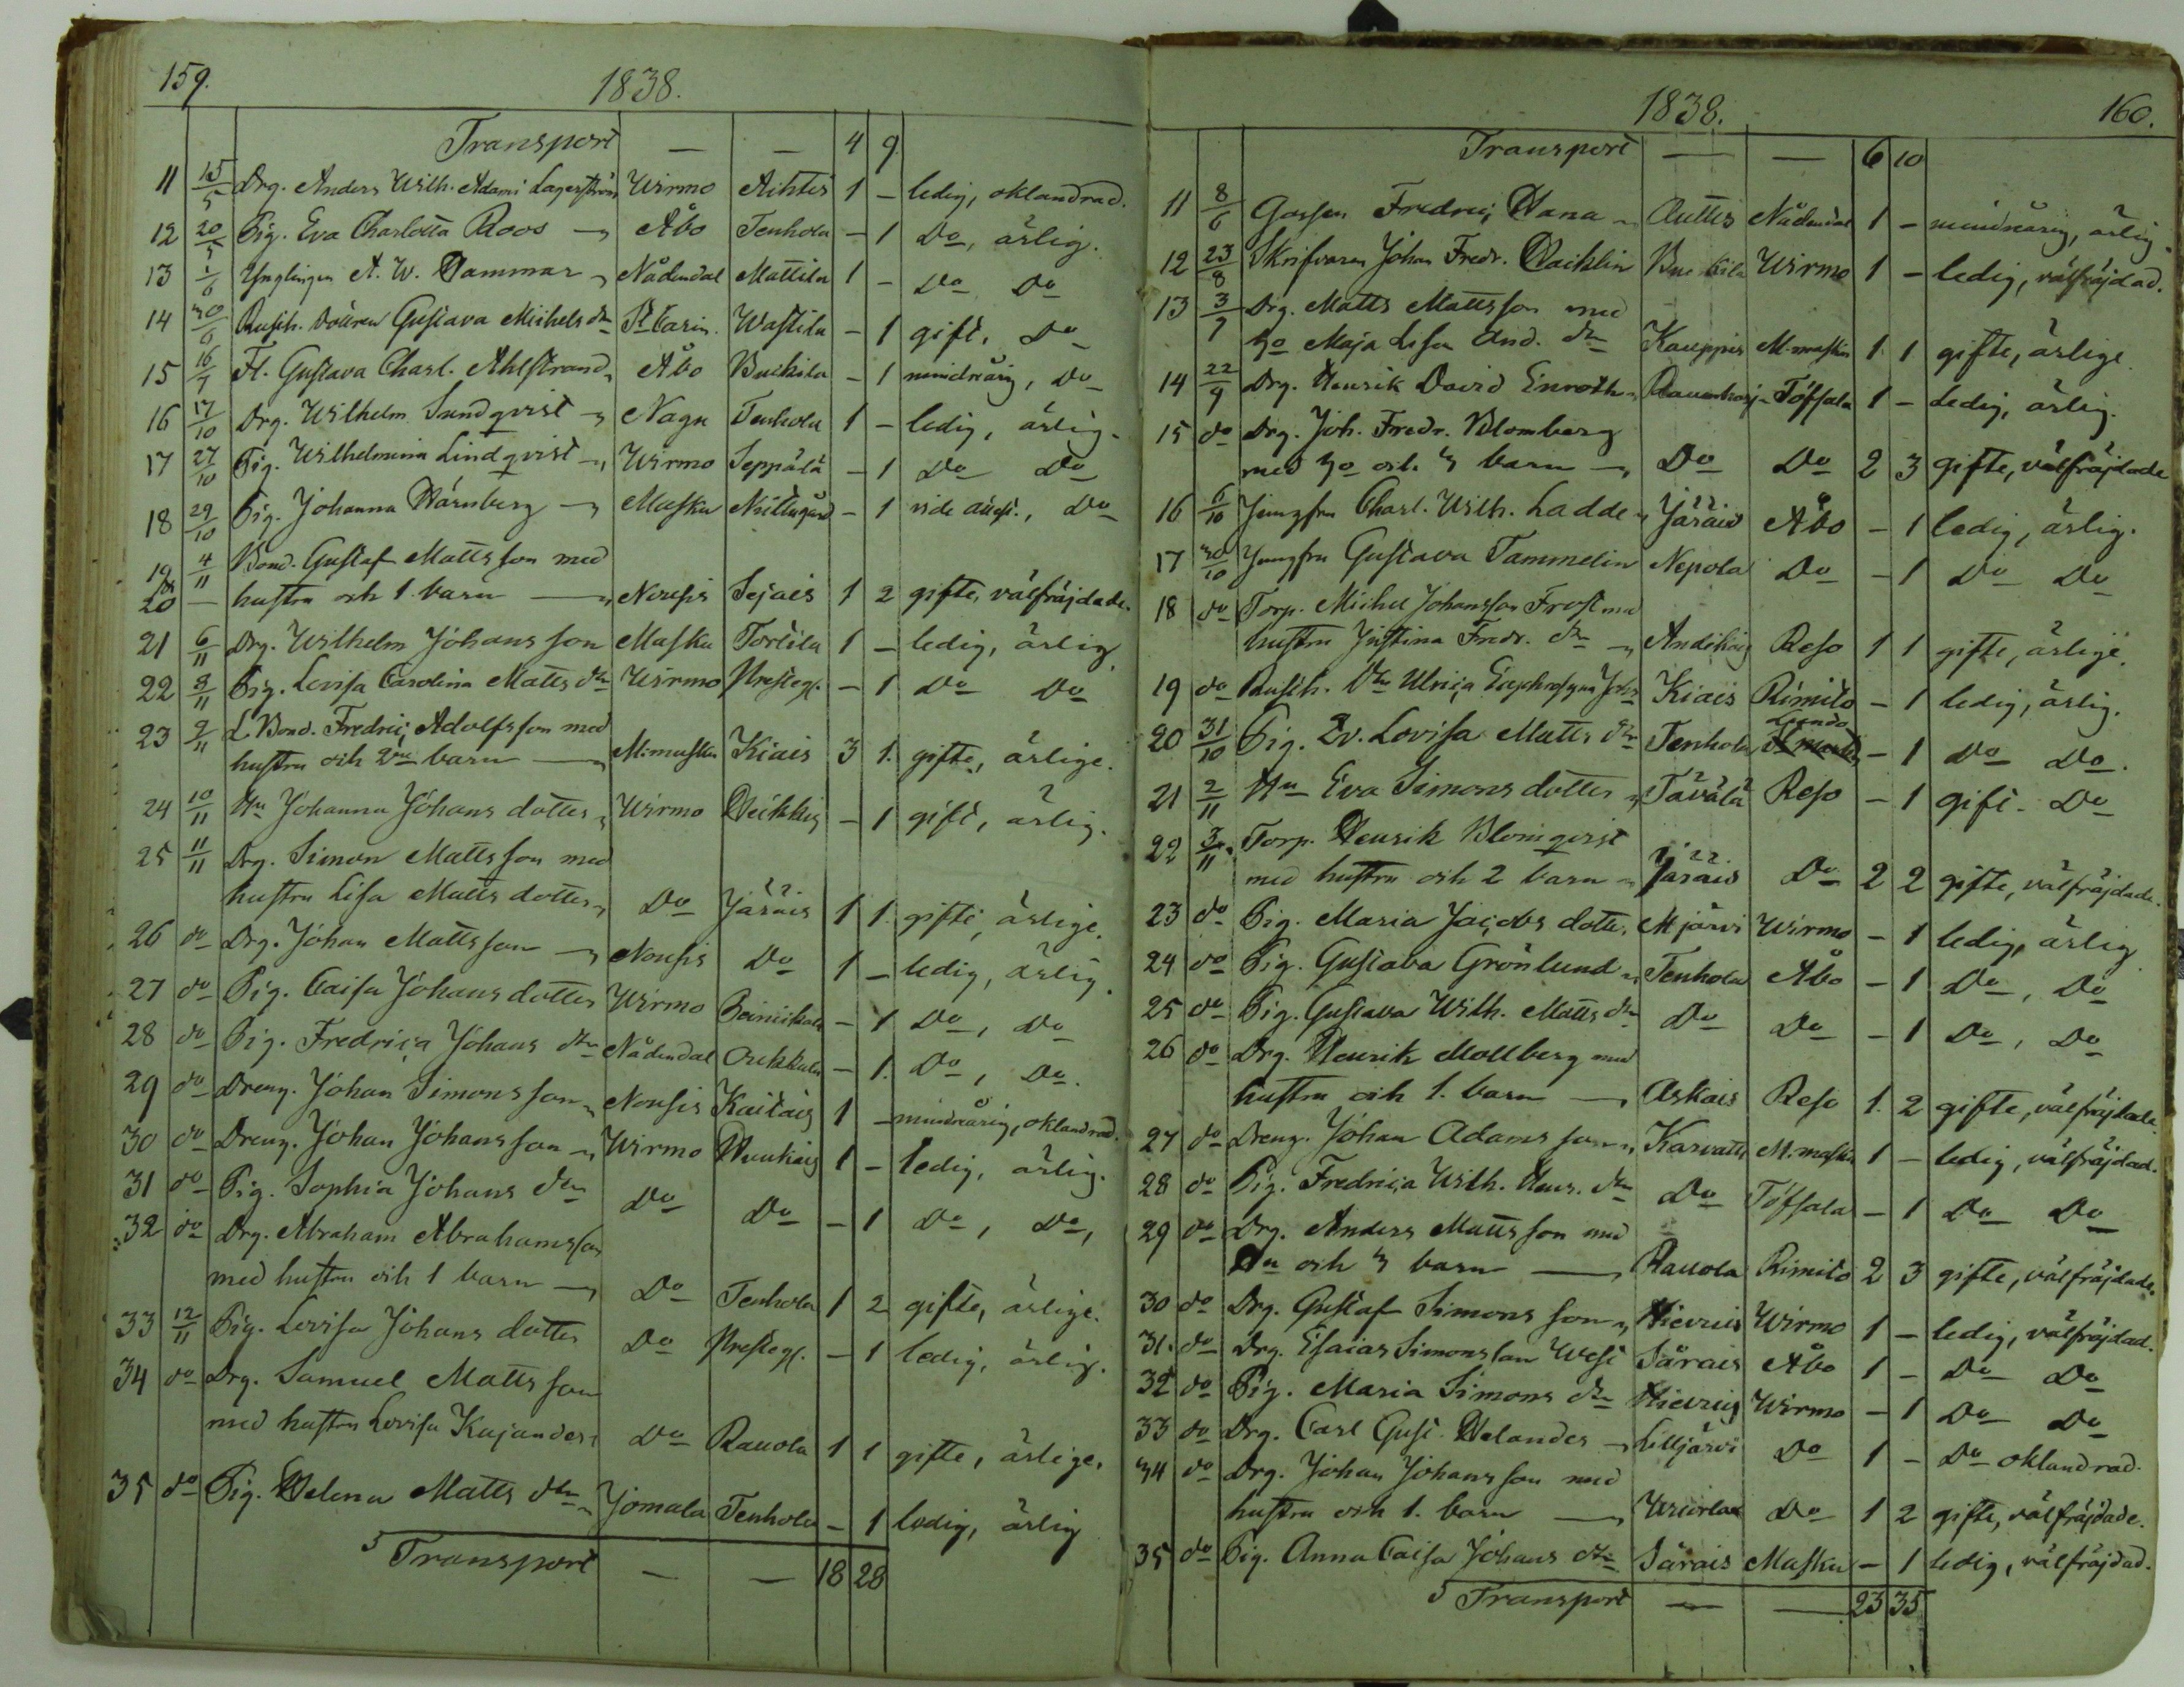 159.
1838.
Transport — — 4 9
11 15/5 Drg. Anders Wilh. Adami Lagerström Wirmo Aihtis 1 – ledig, oklandrad.
12 20/5 Pig. Eva Charlotta Roos Åbo Tenhola – 1 Do, ärlig.
13 1/6 Ynglingen A. W. Hammar Nådendal Mattila 1 – Do Do
14 30/6 Rusth. Gustava Michels dr Wastila – 1 gift, Do
15 16/7 Fl. Gustava Charl. Ahlstrand Åbo – 1 mindreårig, Do
16 17/10 Drg. Wilhelm Sundqvist Nagu Tenhola 1 – ledig, ärlig.
17 27/10 Pig. Wilhelmina Lindqvist Wirmo Seppälä – 1 Do Do
18 29/10 Pig. Johanna Wärnberg Masku – 1 Do
19 4/11 Bond. Gustaf Mattsson med
20 — hustru och 1 barn Nousis Sejais 1 2 gifte, välfräjdade.
21 6/11 Drg. Wilhelm Johansson Masku Tortila 1 – ledig, ärlig
22 8/11 Pig. Lovisa Carolina Matts dr Wirmo Presteg. – 1 Do Do
23 9/11 L Bond. Fredric Adolfsson med
hustru och 2ne barn M:masku Kiais 3 1. gifte, ärlige.
24 10/11 Hu Johanna Johans dotter Wirmo Heikkis – 1 gift, ärlig.
25 11/11 Drg. Simon Mattsson med
hustru Lisa Matts dotter Do Järäis 1 1. gifte, ärlige.
26 do Drg. Johan Mattsson Nousis Do 1 – ledig, ärlig.
27 do Pig. Caisa Johans dotter Wirmo – 1 Do, Do
28 do Pig. Fredrica Johans dr Nådendal Ouckkula – 1. Do, Do.
29 do Dreng. Johan Simonsson Nousis Kaitais 1 – mindreårig, oklandrad.
30 do Dreng. Johan Johansson Wirmo 1 – ledig, ärlig.
31 do Pig. Sophia Johans dr Do Do – 1 Do, Do,
32 do Drg. Abraham Abrahamsson
med hustru och 1 barn Do Tenhola 1 2 gifte, ärlige.
33 12/11 Pig. Lovisa Johans dotter Do Presteg. – 1 ledig, ärlig.
34 do Drg. Samuel Mattsson
med hustru Lovisa Kajander Do Rauola 1 1 gifte, ärlige.
35 do Pig. Helena Matts dr Jomala Tenhola – 1 ledig, ärlig
Transport — — 18 28
1838.
160.
Transport — — 6 10
11 8/6 Gossen Fredric Hana Auttis Nådendal 1 – mindreårig, ärlig.
12 23/8 Skrifvaren Johan Fredr. Wirmo 1 – ledig, välfräjdad.
13 3/9 Drg. Matts Mattsson med
ho Maja Lisa And. dr Kauppis M.masku 1 1 gifte, ärlige
14 22/9 Drg. Henrik David Enroth Töfsala 1 – Ledig, ärlig.
15 do Drg. Joh. Fredr. Blomberg
med ho och 3 barn Do Do 2 3 gifte, välfräjdade
16 6/10 Jungfru Charl. Wilh. Ladde Järäis Åbo – 1 ledig, ärlig.
17 30/10 Jungfru Gustava Tammelin Nepola Do – 1 Do Do
18 do Torp. Michel Johansson Frost med
hustru Justina Fredr. dr Reso 1 1 gifte, ärlige.
19 do Rusth. dr Ulrica Euphrosyna Joh. Kiais Rimito – 1 ledig, ärlig.
20 31/10 Pig. Ev. Lovisa Matts dr Tenhola Lundo – 1 Do Do.
21 2/11 Hu Eva Simons dotter Tavälä Reso – 1 gift. Do
22 3/11 Torp. Henrik Blomqvist
med hustru och 2 barn Järäis Do 2 2 gifte, välfräjdade.
23 do Pig. Maria Jacobs dotter Mjärvi Wirmo – 1 ledig, ärlig
24 do Pig. Gustava Grönlund Tenhola Åbo – 1 Do, Do
25 do Pig. Gustava Wilh. Matts dr Do Do – 1 Do, Do
26 do Drg. Henrik Mollberg med
hustru och 1. barn Askais Reso 1. 2 gifte, välfräjdade.
27 do Dreng. Johan Adamsson Karvatti M.masku 1 – ledig, välfräjdad.
28 do Pig. Fredrica Wilh. Henr. dr Do Töfsala – 1 Do Do
29 do Drg. Anders Mattsson med
Hu och 3 barn Rauola Rimito 2 3 gifte, välfräjdade.
30 do Drg. Gustaf Simonsson Hievris Wirmo 1 – ledig, välfräjdad.
31. do Drg. Esaias Simonsson West Särais Åbo 1 – Do Do
32 do Pig. Maria Simons dr Hievris Wirmo – 1 Do Do
33 do Drg. Carl Gust. Helander Lilljärvi Do 1 – Do oklandrad.
34 do Drg. Johan Johansson med
hustru och 1. barn Do 1 2 gifte, välfräjdade.
35 do Pig. Anna Caisa Johans dr Särais Masku – 1 ledig, välfräjdad.
Transport — — 23 35